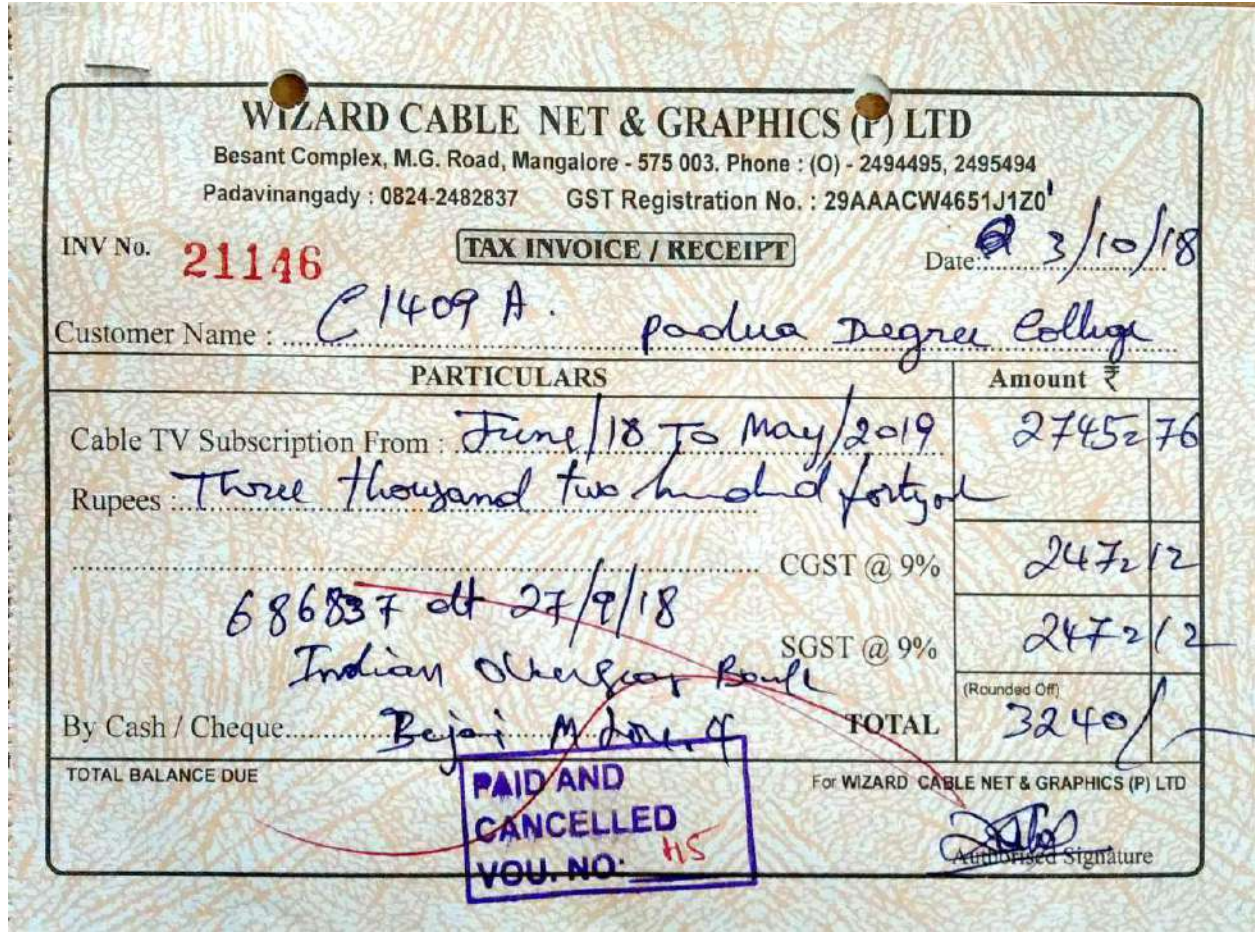 WIZARD CABLE NET & GRAPHICS (P) LTD
Besant Complex, M.G. Road, Mangalore - 575 003. Phone : (O) - 2494495, 2495494
Padavinangady : 0824-2482837 GST Registration No. : 29AAACW4651J1Z0
INV No. 21146 TAX INVOICE / RECEIPT Date: 3/10/18
Customer Name : C 1409 A. Padua Degree College
PARTICULARS Amount ₹
Cable TV Subscription From : June/18 To May/2019 2745=76
Rupees : Three thousand two hundred forty
CGST @ 9% 247=12
686837 dt 27/9/18
SGST @ 9% 247=12
Indian Overseas Bank
(Rounded Off)
By Cash / Cheque Bejai M'lore. 4 TOTAL 3240/-
TOTAL BALANCE DUE For WIZARD CABLE NET & GRAPHICS (P) LTD
PAID AND
CANCELLED
VOU. NO: 45
Authorised Signature